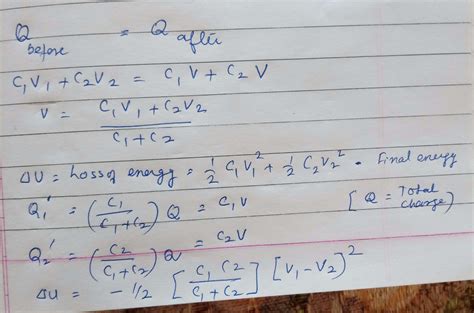 Q before = Q after
C₁V₁ + C₂V₂ = C₁V + C₂V
V = (C₁V₁ + C₂V₂) / (C₁ + C₂)
ΔU = Loss of energy = 1/2 C₁V₁² + 1/2 C₂V₂² - Final energy
Q₁' = (C₁ / (C₁ + C₂)) Q = C₁V [Q = Total charge)
Q₂' = (C₂ / (C₁ + C₂)) Q = C₂V
ΔU = - 1/2 [C₁ C₂ / (C₁ + C₂)] [V₁ - V₂)²